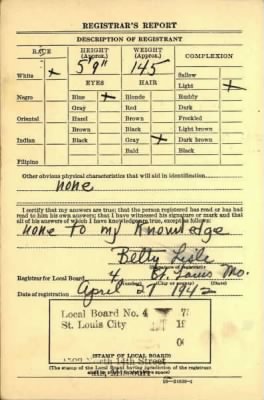 REGISTRAR'S REPORT
DESCRIPTION OF REGISTRANT
RACE HEIGHT (Approx.) WEIGHT (Approx.) COMPLEXION
5'9" 145 Sallow
White x Light x
EYES HAIR
Negro Blue x Blonde Ruddy
Gray Red Dark
Oriental Hazel Brown Freckled
Brown Black Light brown
Indian Black Gray x Dark brown
Bald Black
Filipino
Other obvious physical characteristics that will aid in identification
none
I certify that my answers are true; that the person registered has read or has had
read to him his own answers; that I have witnessed his signature or mark and that
all of his answers of which I have knowledge are true, except as follows:
none to my Knowledge
Betty
(Signature of registrar)
Registrar for Local Board 4 St. Louis Mo.
(Number) (City or county) (State)
Date of registration April 27 1942
Local Board No. 4
St. Louis City
North 14th Street
(STAMP OF LOCAL BOARD)
(The stamp of the Local Board having jurisdiction of the registrant